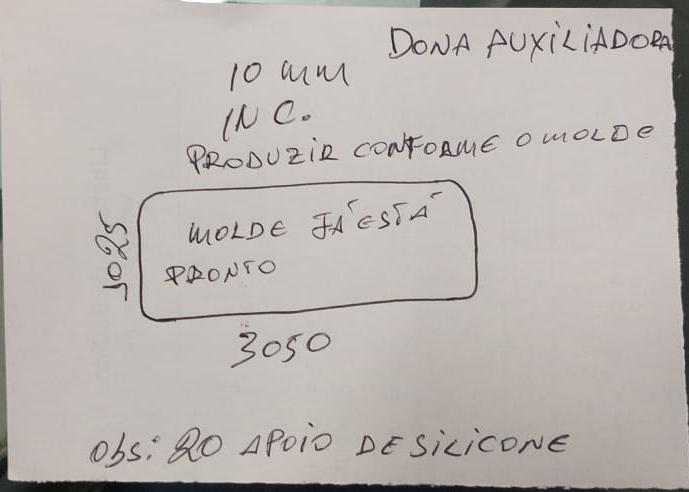 DONA AUXILIADORA
10 mm
INC.
PRODUZIR CONFORME O MOLDE
MOLDE JÁ ESTÁ
PRONTO
1025
3050
Obs: 20 APOIO DE SILICONE